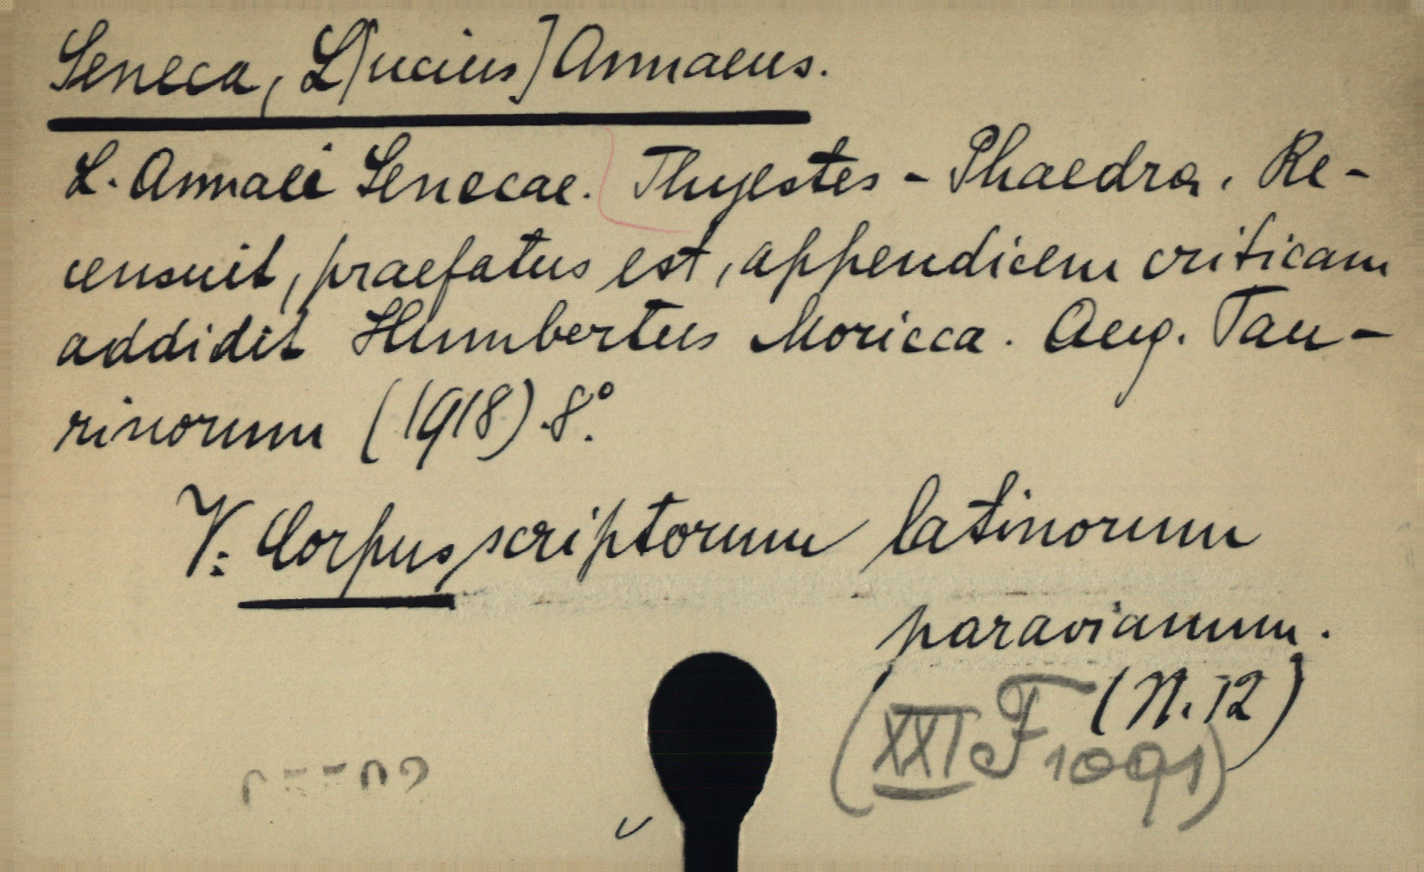 Seneca, L[ucius] Annaeus.
L. Annaei Senecae. Thyestes - Phaedra. Re-
censuit, praefatus est, appendicem criticam
addidit Humbertus Moricca. Aug. Tau-
rinorum (1918). 8°.
V: Corpus scriptorum latinorum
paravianum.
(N. 12)
(XXI F 1091)